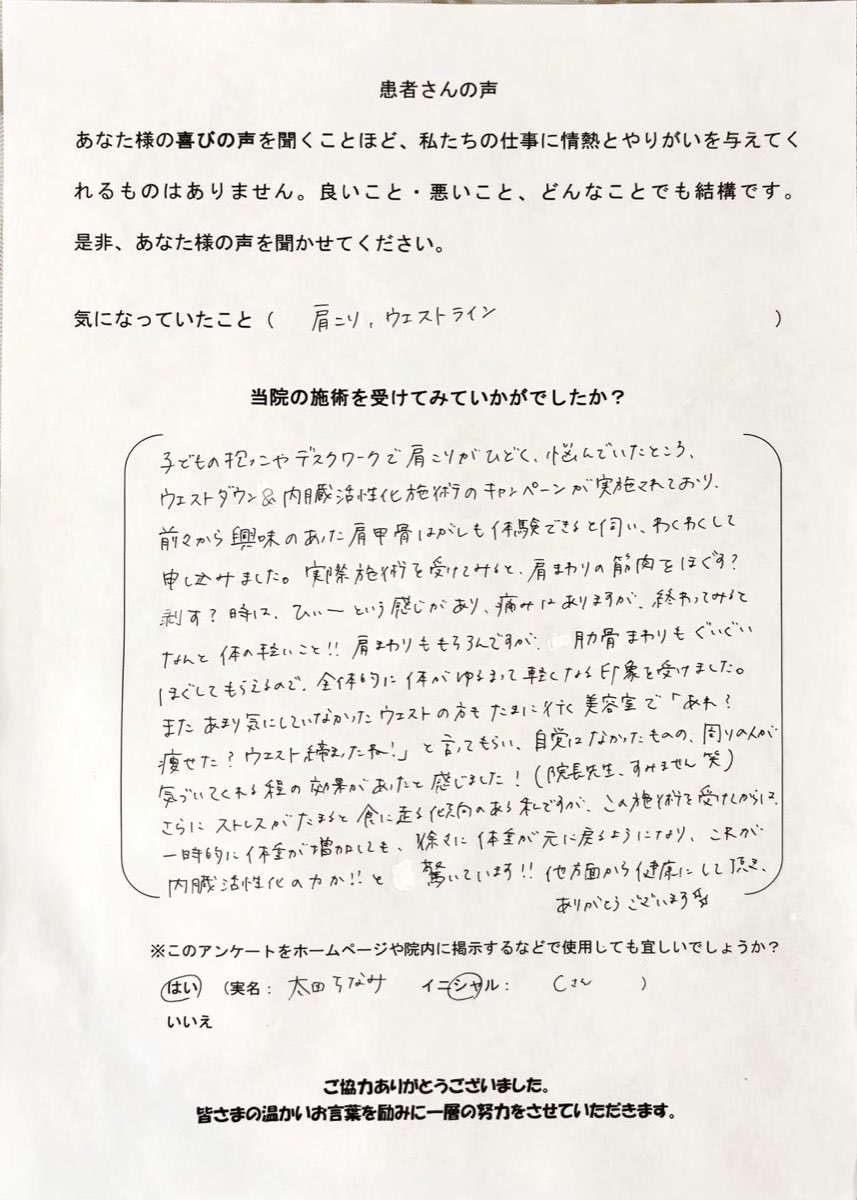 患者さんの声
あなた様の喜びの声を聞くことほど、私たちの仕事に情熱とやりがいを与えてく
れるものはありません。良いこと・悪いこと、どんなことでも結構です。
是非、あなた様の声を聞かせてください。
気になっていたこと（ 肩こり、ウエストライン ）
当院の施術を受けてみていかがでしたか？
子どもの抱っこやデスクワークで肩こりがひどく、悩んでいたところ、
ウエストダウン&内臓活性化施術のキャンペーンが実施されており、
前々から興味のあった肩甲骨はがしも体験できると伺い、わくわくして
申し込みました。実際施術を受けてみると、肩まわりの筋肉をほぐす？
剥す？時は、ひぃーという感じがあり、痛みはありますが、終わってみると
なんと体の軽いこと!!肩まわりももちろんですが、肋骨まわりもぐいぐい
ほぐしてもらえるので、全体的に体がゆるまって軽くなる印象を受けました。
またあまり気にしていなかったウエストの方もたまに行く美容室で「あれ？
痩せた？ウエスト締まったね！」と言ってもらい、自覚はなかったものの、周りの人が
気づいてくれる程の効果があったと感じました！(院長先生、すみません笑)
さらにストレスがたまると食に走る傾向のある私ですが、この施術を受けてからは、
一時的に体重が増加しても、徐々に体重が元に戻るようになり、これが
内臓活性化の力か!!と驚いています!!他方面から健康にして頂き、
ありがとうございます
※このアンケートをホームページや院内に掲示するなどで使用しても宜しいでしょうか？
はい （実名： 太田ちなみ イニシャル： Cさん ）
いいえ
ご協力ありがとうございました。
皆さまの温かいお言葉を励みに一層の努力をさせていただきます。